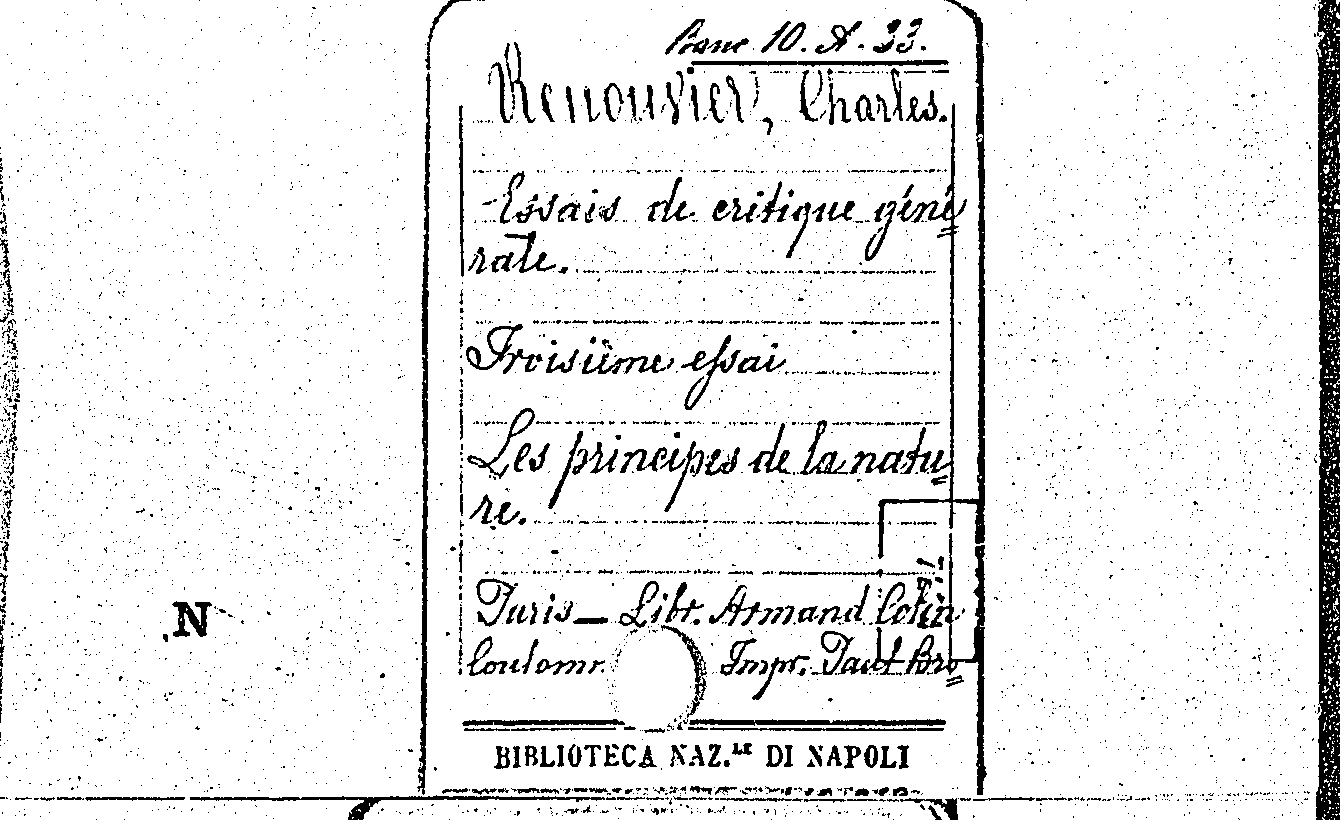 Banc 10. A. 33.
Renouvier, Charles.
Essais de critique géné
rale.
Troisième essai
Les principes de la natu
re.
Paris_ Libr. Armand Colin
Coulomr. Impr. Paul Bro
N
BIBLIOTECA NAZ.LE DI NAPOLI